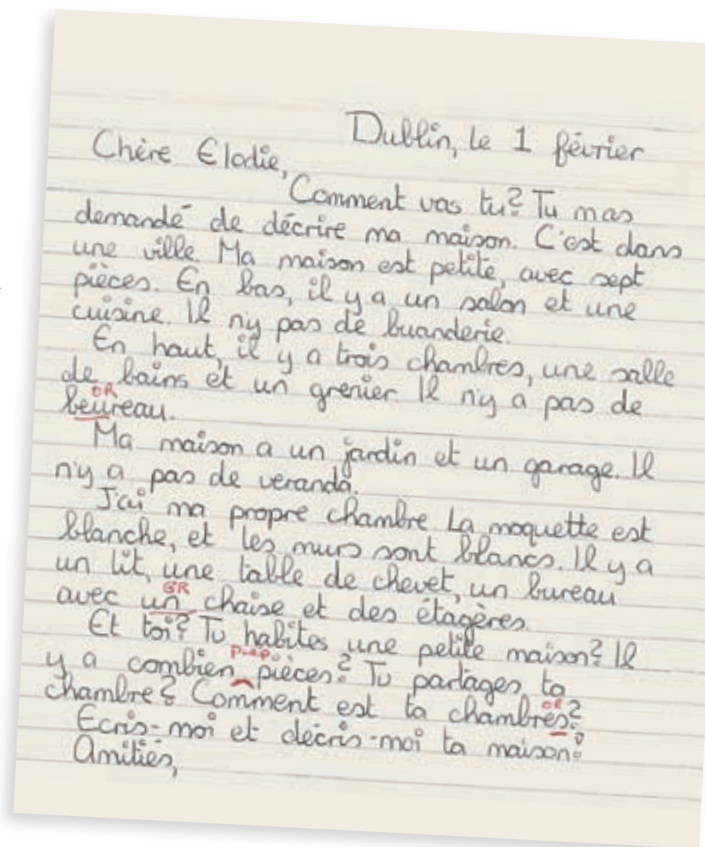 Dublin, le 1 février
Chère Elodie,
Comment vas tu? Tu mas
demandé de décrire ma maison. C'est dans
une ville. Ma maison est petite, avec sept
pièces. En bas, il y a un salon et une
cuisine. Il ny pas de buanderie.
En haut, il y a trois chambres, une salle
de bains et un grenier. Il n'y a pas de
OR
beureau.
Ma maison a un jardin et un garage. Il
n'y a pas de veranda.
J'ai ma propre chambre. La moquette est
blanche, et les murs sont blancs. Il y a
un lit, une table de chevet, un bureau
GR
avec un chaise et des étagères.
Et toi? Tu habites une petite maison? Il
prep.
y a combien pièces? Tu partages ta
OR
chambre? Comment est ta chambres?
Ecris-moi et décris-moi ta maison!
Amitiés,